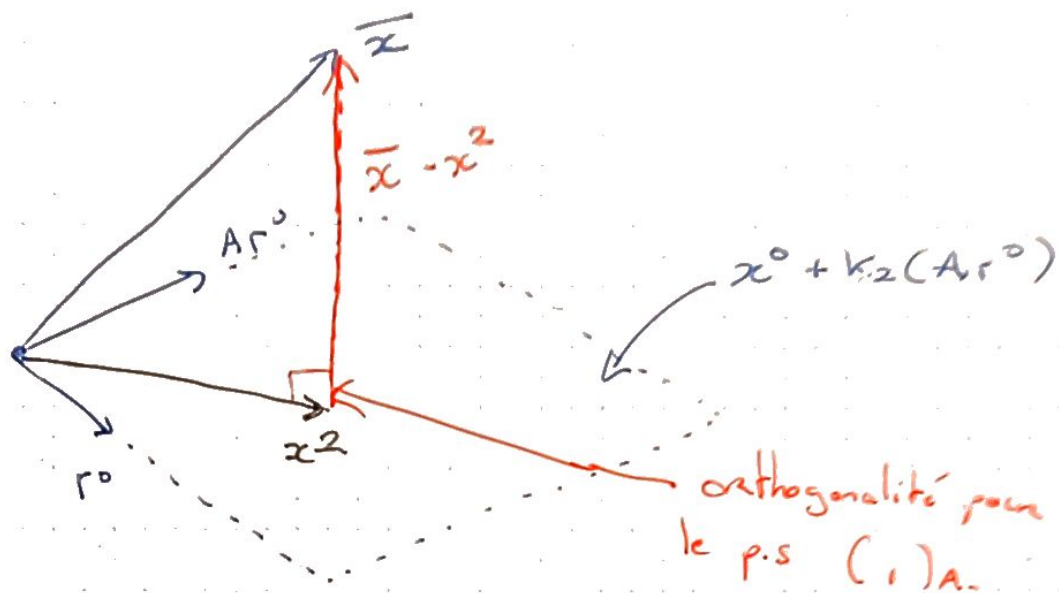 x̄
x̄ - x²
Ar⁰
x⁰ + K₂(A,r⁰)
x²
r⁰
orthogonalité pour
le p.s ( , )A.